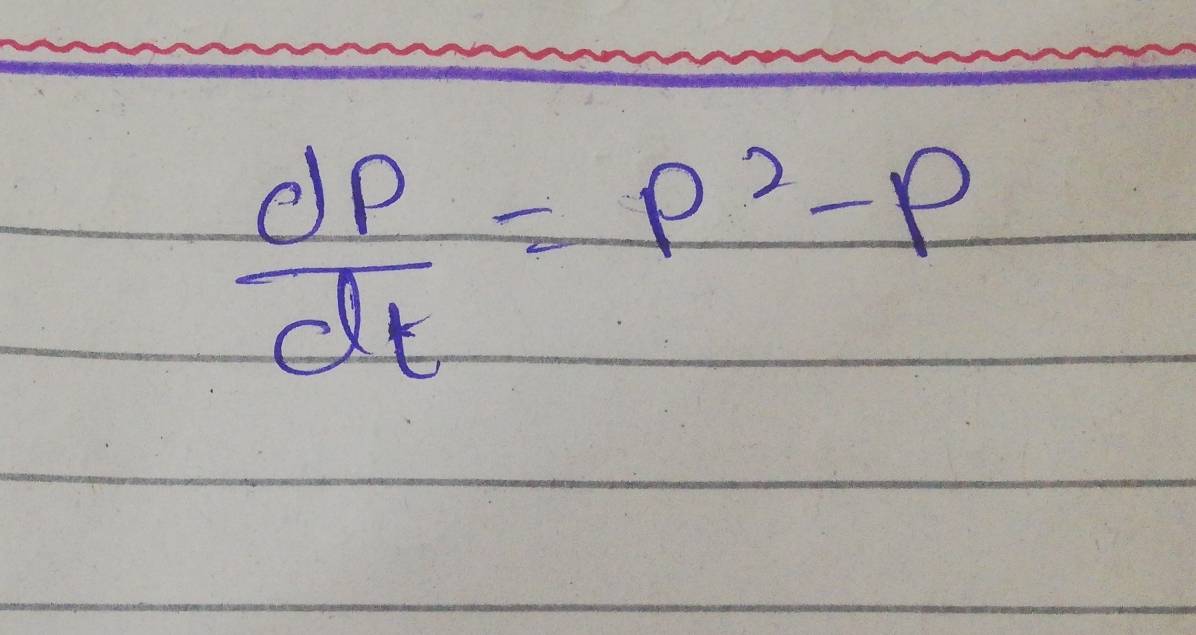 dP/dt = P² - P